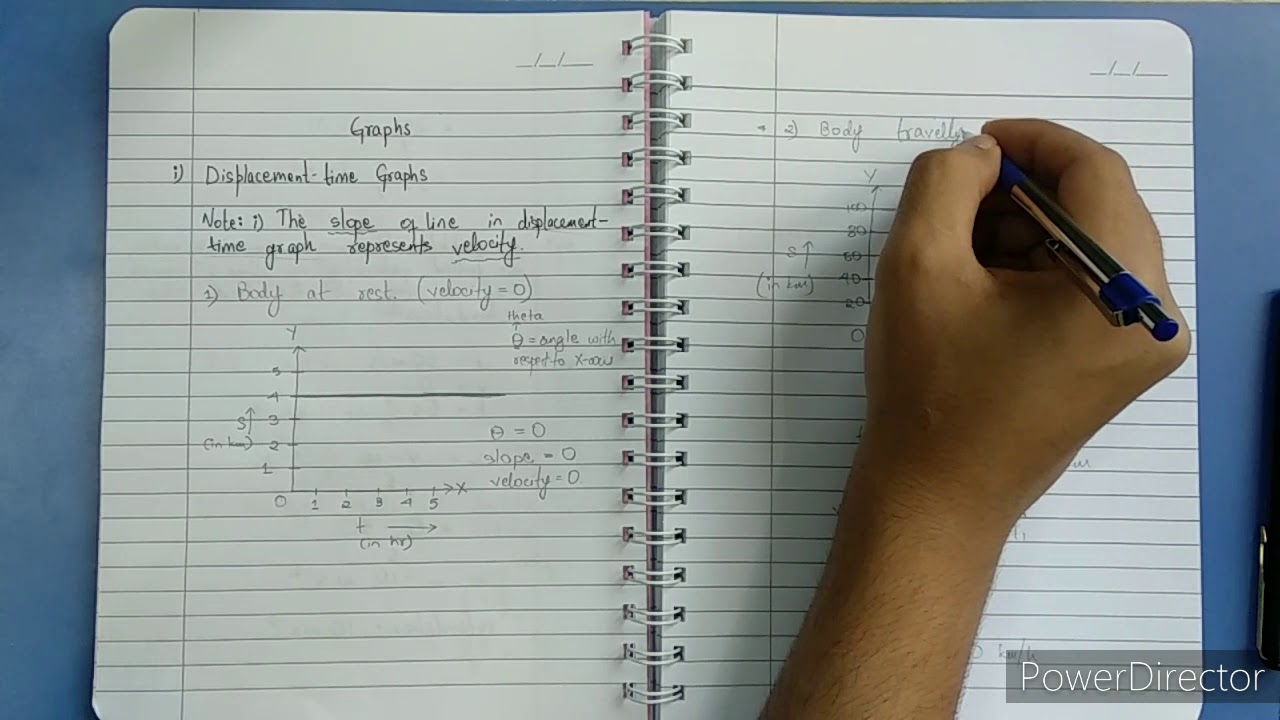 _/_/__
Graphs
i) Displacement-time Graphs
Note: i) The slope of line in displacement-
time graph represents velocity.
1) Body at rest. (velocity=0)
Y
theta
θ = angle with
respect to X-axis
5
4
S↑ 3
(in km) 2
1
0 1 2 3 4 5 X
t →
(in hr)
θ = 0
slope = 0
velocity = 0
_/_/__
2) Body travelly
Y
100
80
S↑ 60
(in km) 40
20
0
km/h
PowerDirector